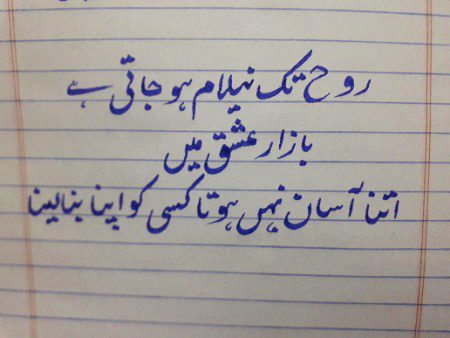 روح تک نیلام ہو جاتی ہے
بازار عشق میں
اتنا آسان نہیں ہوتا کسی کو اپنا بنا لینا